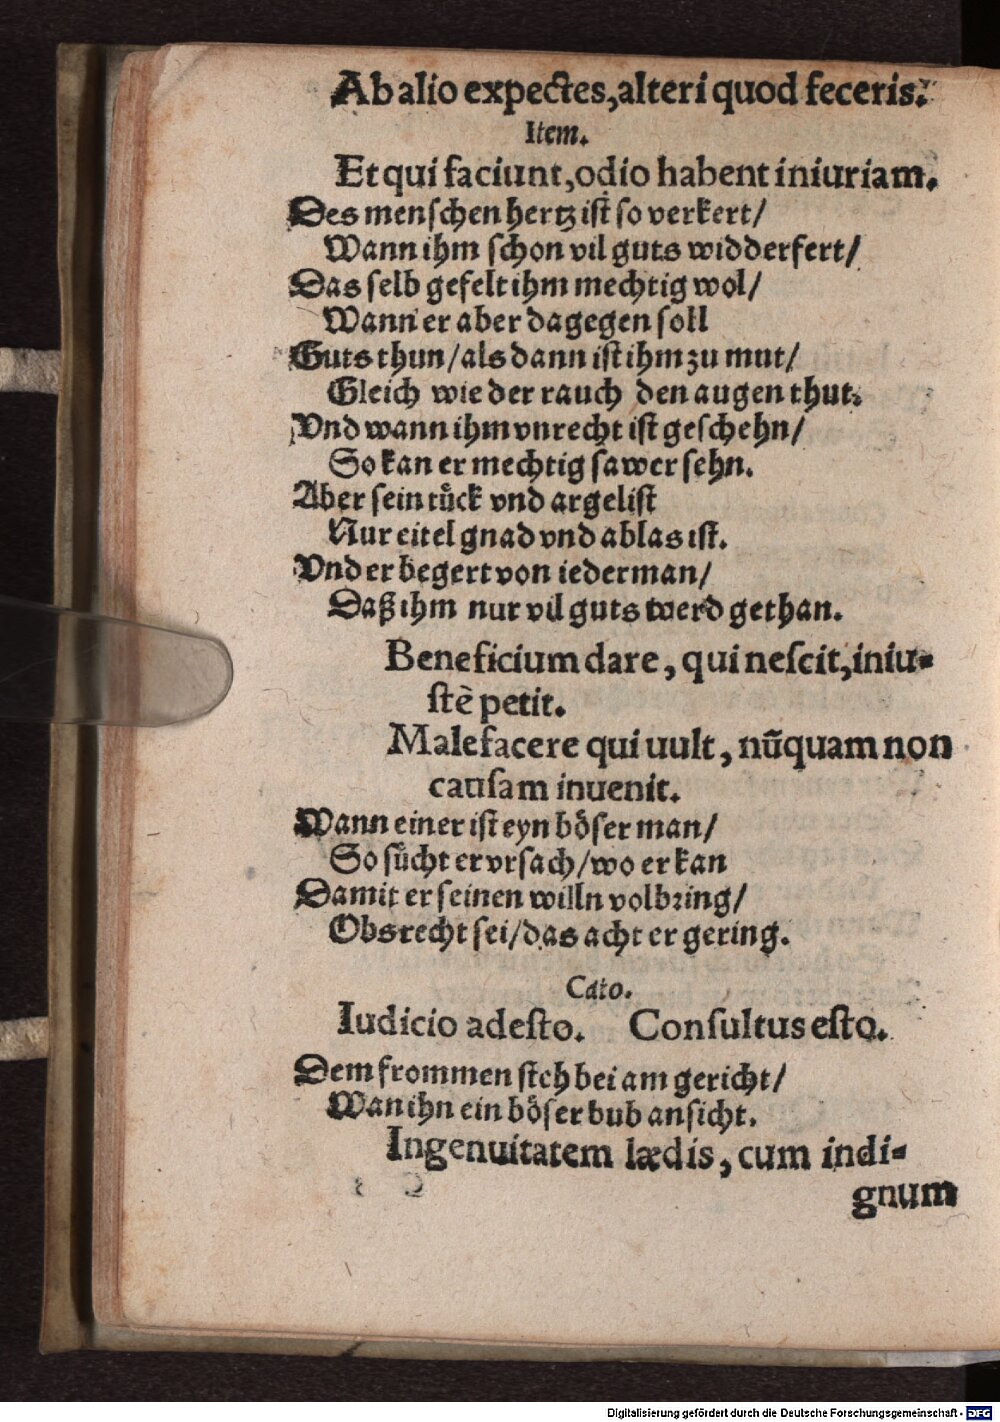 Ab alio expectes, alteri quod feceris.
Item.
Et qui faciunt, odio habent iniuriam.
Des menschen hertz ist so verkert/
Wann ihm schon vil guts widderfert/
Das selb gefelt ihm mechtig wol/
Wann er aber dagegen soll
Guts thun/als dann ist ihm zu mut/
Gleich wie der rauch den augen thut.
Vnd wann ihm vnrecht ist geschehn/
So kan er mechtig sawer sehn.
Aber sein tück vnd argelist
Nur eitel gnad vnd ablas ist.
Vnd er begert von iederman/
Daß ihm nur vil guts werd gethan.
Beneficium dare, qui nescit, iniu-
stè petit.
Malefacere qui uult, nũquam non
causam inuenit.
Wann einer ist eyn böser man/
So sücht er vrsach/wo er kan
Damit er seinen willn volbring/
Obs recht sei/das acht er gering.
Cato.
Iudicio adesto. Consultus esto.
Dem frommen steh bei am gericht/
Wan ihn ein böser bub ansicht.
Ingenuitatem lædis, cum indi-
gnum
Digitalisierung gefördert durch die Deutsche Forschungsgemeinschaft - DFG